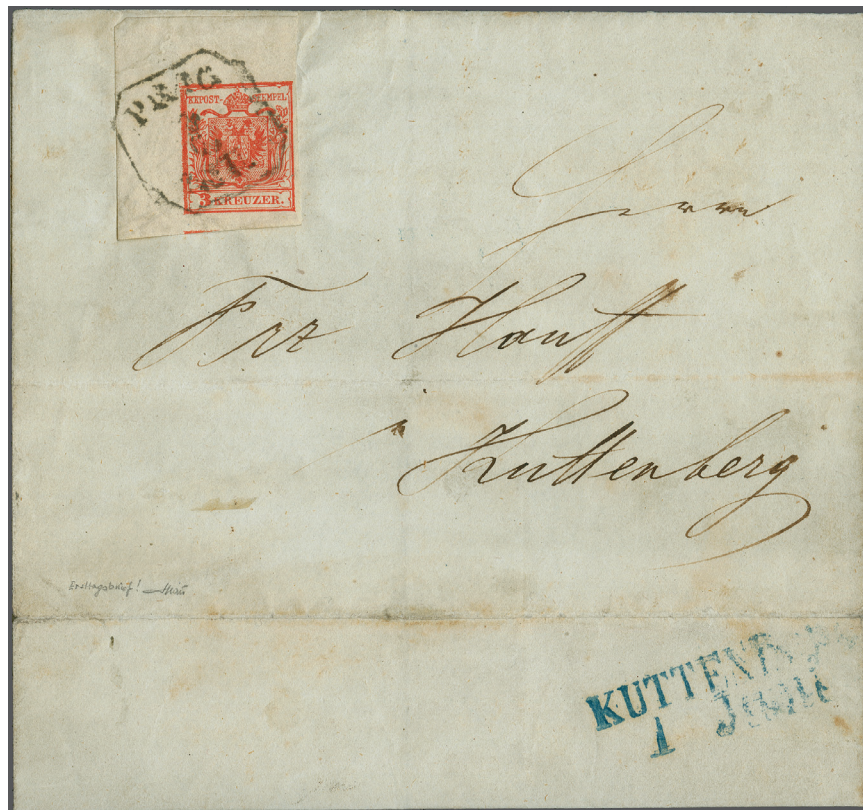 PRAG
KKPOST-STEMPEL
3 KREUZER.
Herrn
Frz Hauff
Kuttenberg
Ersttagsbrief!
KUTTENBERG
1 Juni